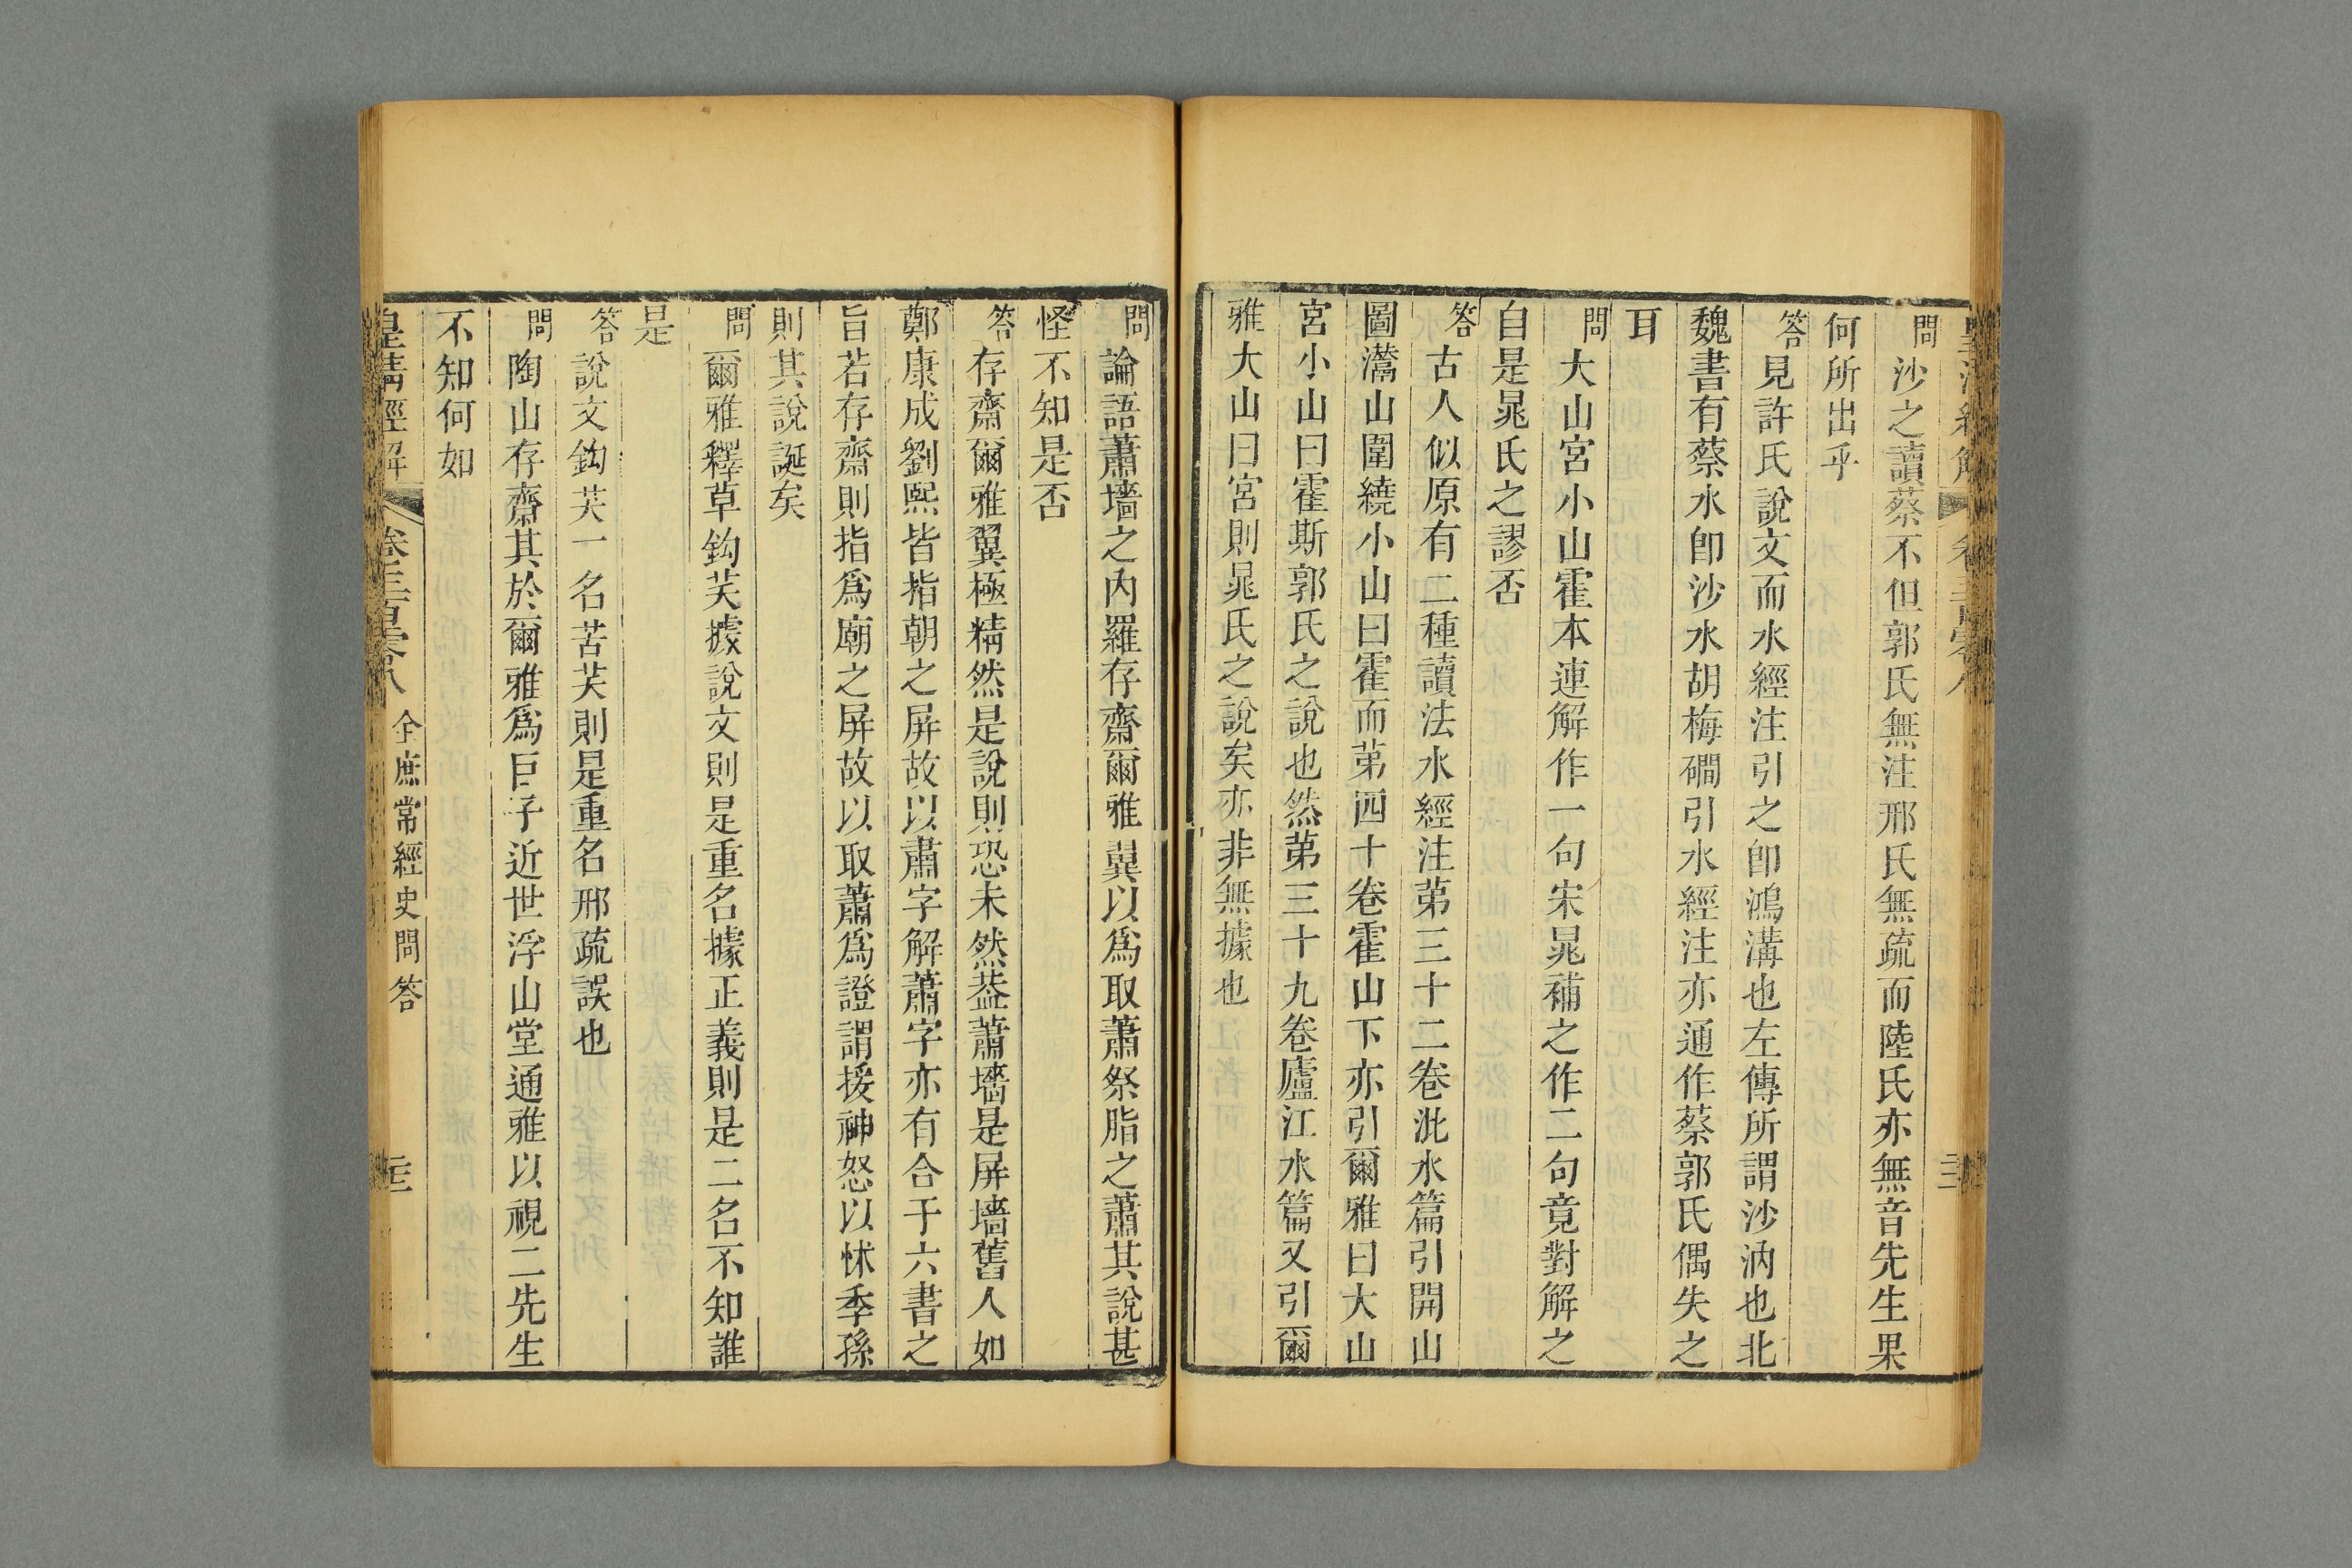 問沙之讀蔡不但郭氏無注邢氏無疏而陸氏亦無音先生果
何所出乎
答見許氏說文而水經注引之卽鴻溝也左傳所謂沙汭也北
魏書有蔡水卽沙水胡梅磵引水經注亦通作蔡郭氏偶失之
耳
問大山宮小山霍本連解作一句宋晁補之作二句竟對解之
自是晁氏之謬否
答古人似原有二種讀法水經注第三十二卷沘水篇引開山
圖灊山圍繞小山曰霍而第四十卷霍山下亦引爾雅曰大山
宮小山曰霍斯郭氏之說也然第三十九卷廬江水篇又引爾
雅大山曰宮則晁氏之說矣亦非無據也
問論語蕭墻之內羅存齋爾雅翼以爲取蕭祭脂之蕭其說甚
怪不知是否
答存齋爾雅翼極精然是說則恐未然葢蕭墻是屏墻舊人如
鄭康成劉熙皆指朝之屏故以肅字解蕭字亦有合于六書之
旨若存齋則指爲廟之屏故以取蕭爲證謂援神怒以怵季孫
則其說誕矣
問爾雅釋草鈎芺據說文則是重名據正義則是二名不知誰
是
答說文鈎芺一名苦芺則是重名邢疏誤也
問陶山存齋其於爾雅爲巨子近世浮山堂通雅以視二先生
不知何如
皇淸經解 卷三百零八 全庶常經史問答